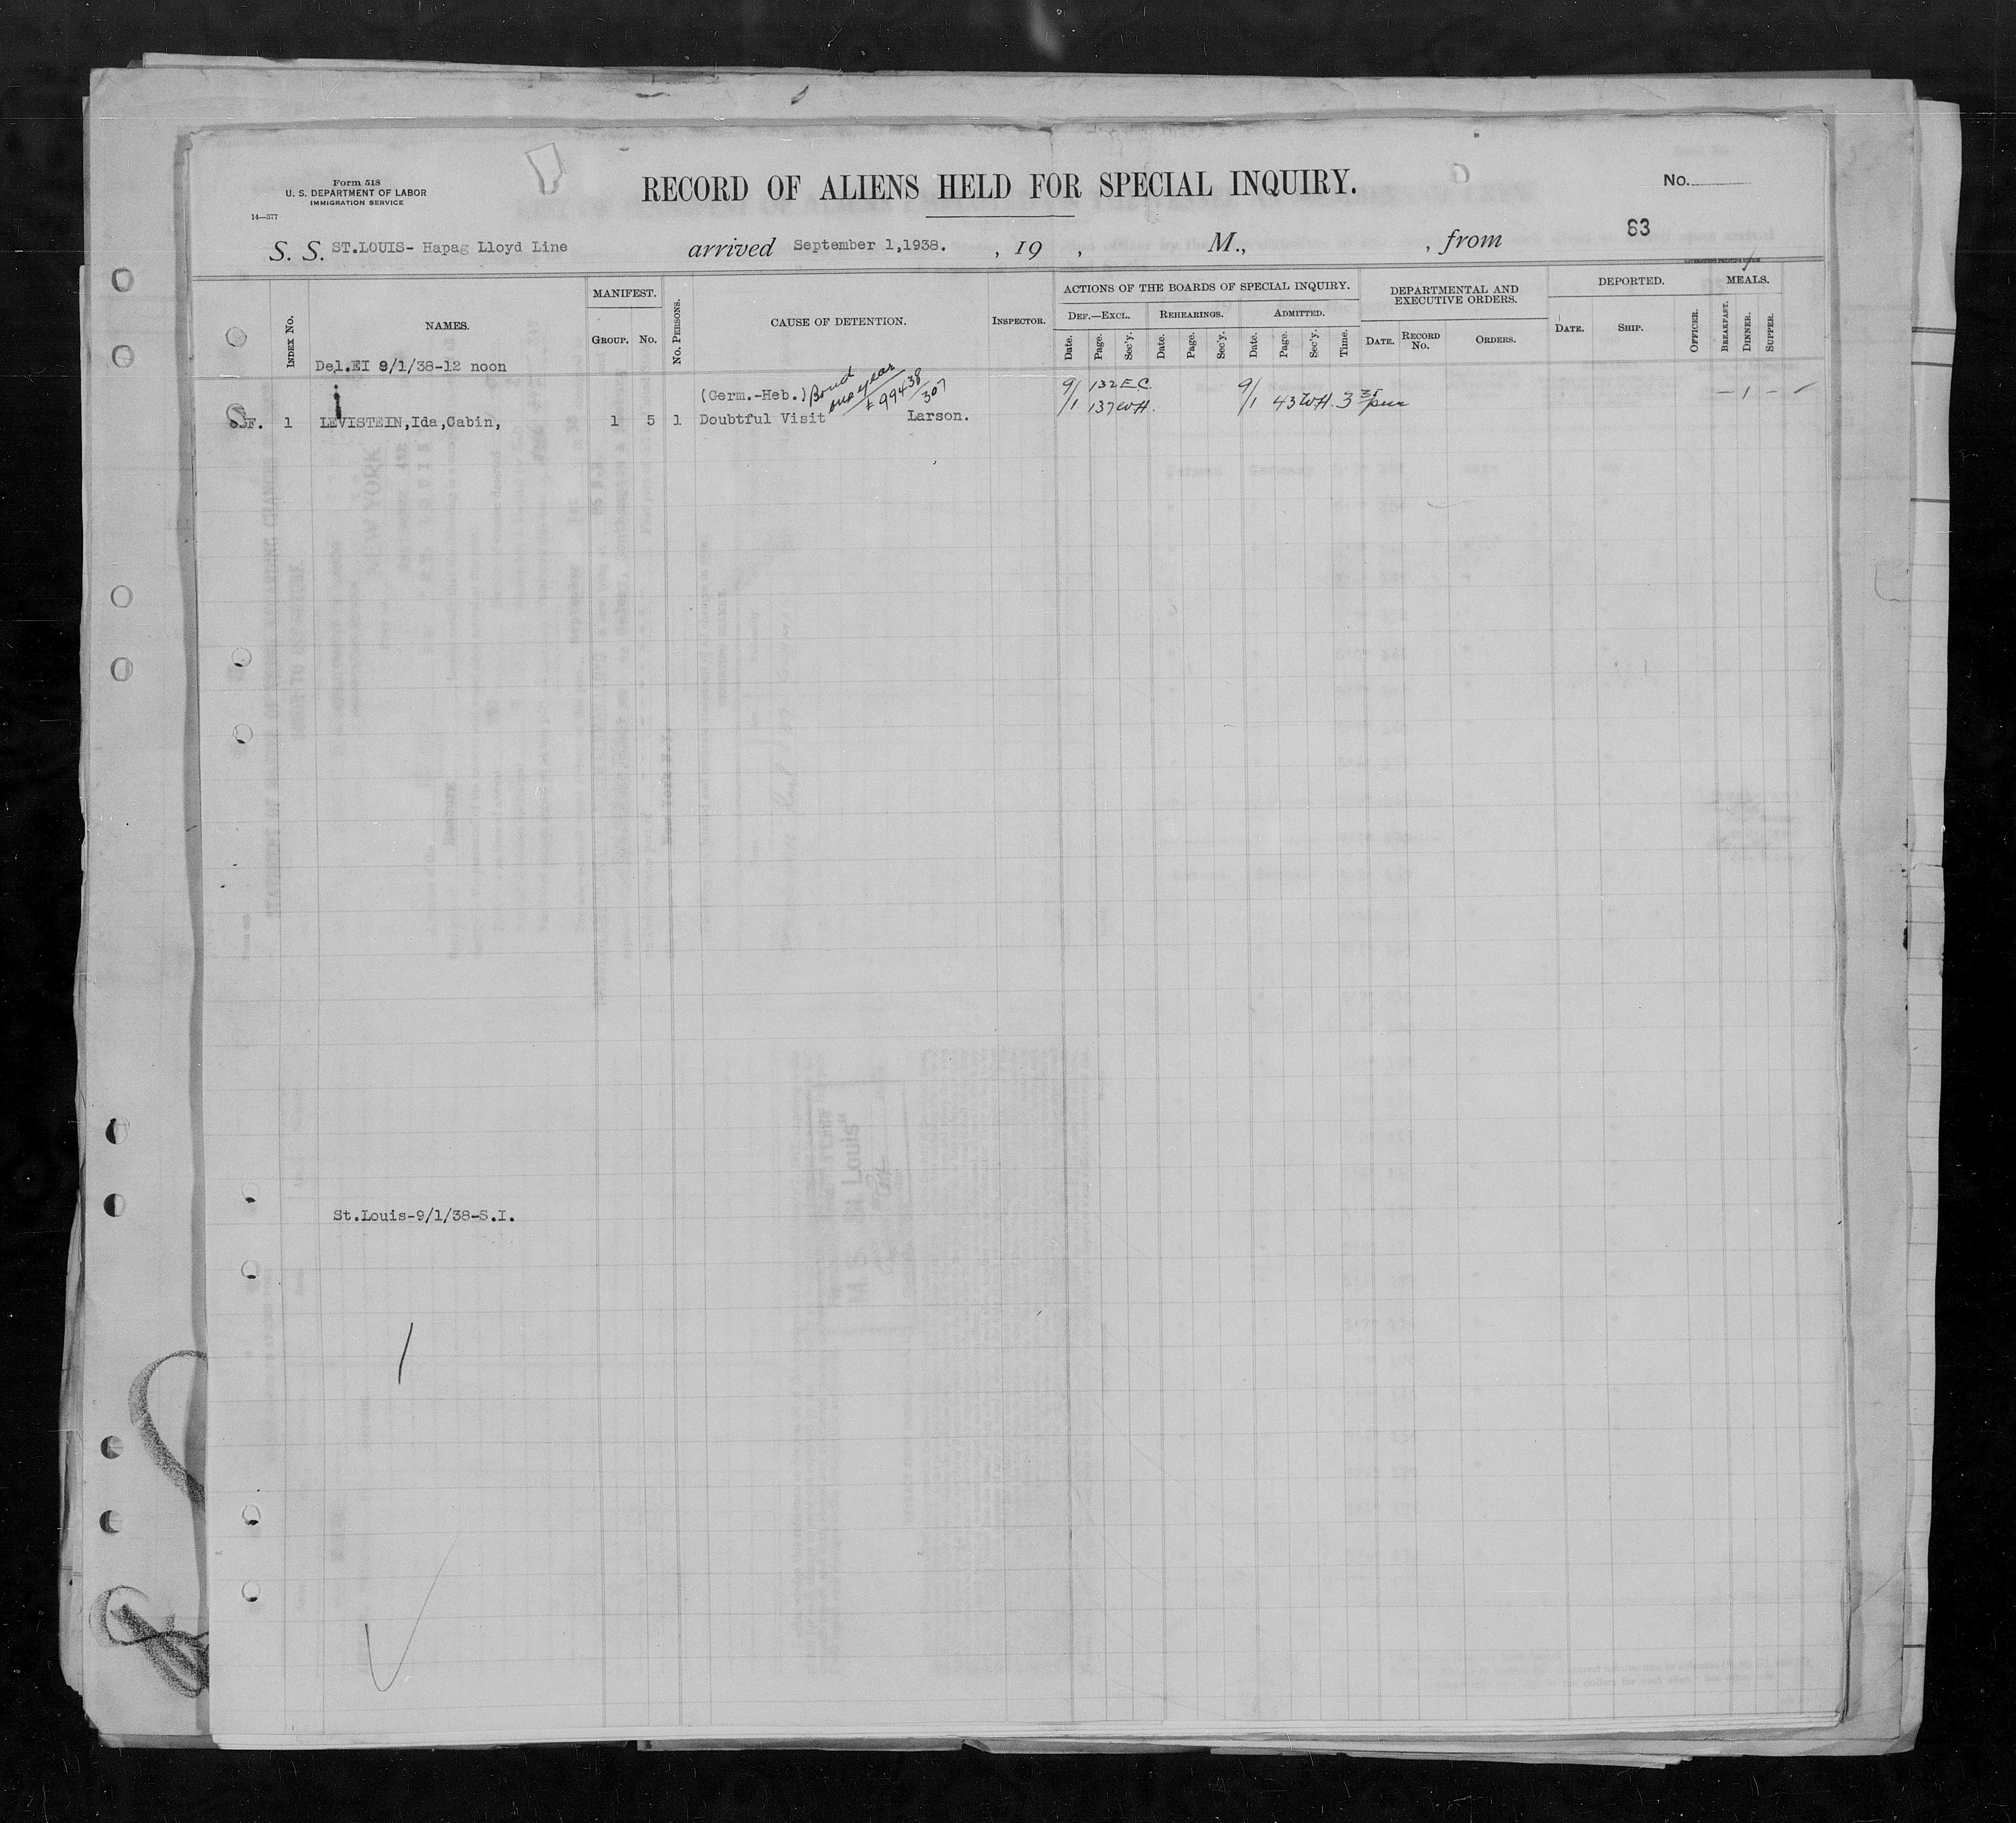 Form 518
U. S. DEPARTMENT OF LABOR
IMMIGRATION SERVICE
14—377
RECORD OF ALIENS HELD FOR SPECIAL INQUIRY.
No.
83
S. S. ST.LOUIS- Hapag Lloyd Line arrived September 1,1938. , 19 , M., , from
INDEX No. NAMES. MANIFEST. GROUP. No. No. PERSONS. CAUSE OF DETENTION. INSPECTOR. ACTIONS OF THE BOARDS OF SPECIAL INQUIRY. DEPARTMENTAL AND EXECUTIVE ORDERS. DEPORTED. MEALS.
DEF.—EXCL. REHEARINGS. ADMITTED.
Date. Page. Sec'y. Date. Page. Sec'y. Date. Page. Sec'y. Time. DATE. RECORD No. ORDERS. DATE. SHIP. OFFICER. BREAKFAST. DINNER. SUPPER.
Del.EI 9/1/38-12 noon
(Germ.-Heb.) Bond one year 99438/307 9/1 132 EC 9/1 43 WH. 3 35 pm — 1 — ✓
137 WH.
SF. 1 LEVISTEIN,Ida,Cabin, 1 5 1 Doubtful Visit Larson.
St.Louis-9/1/38-S.I.